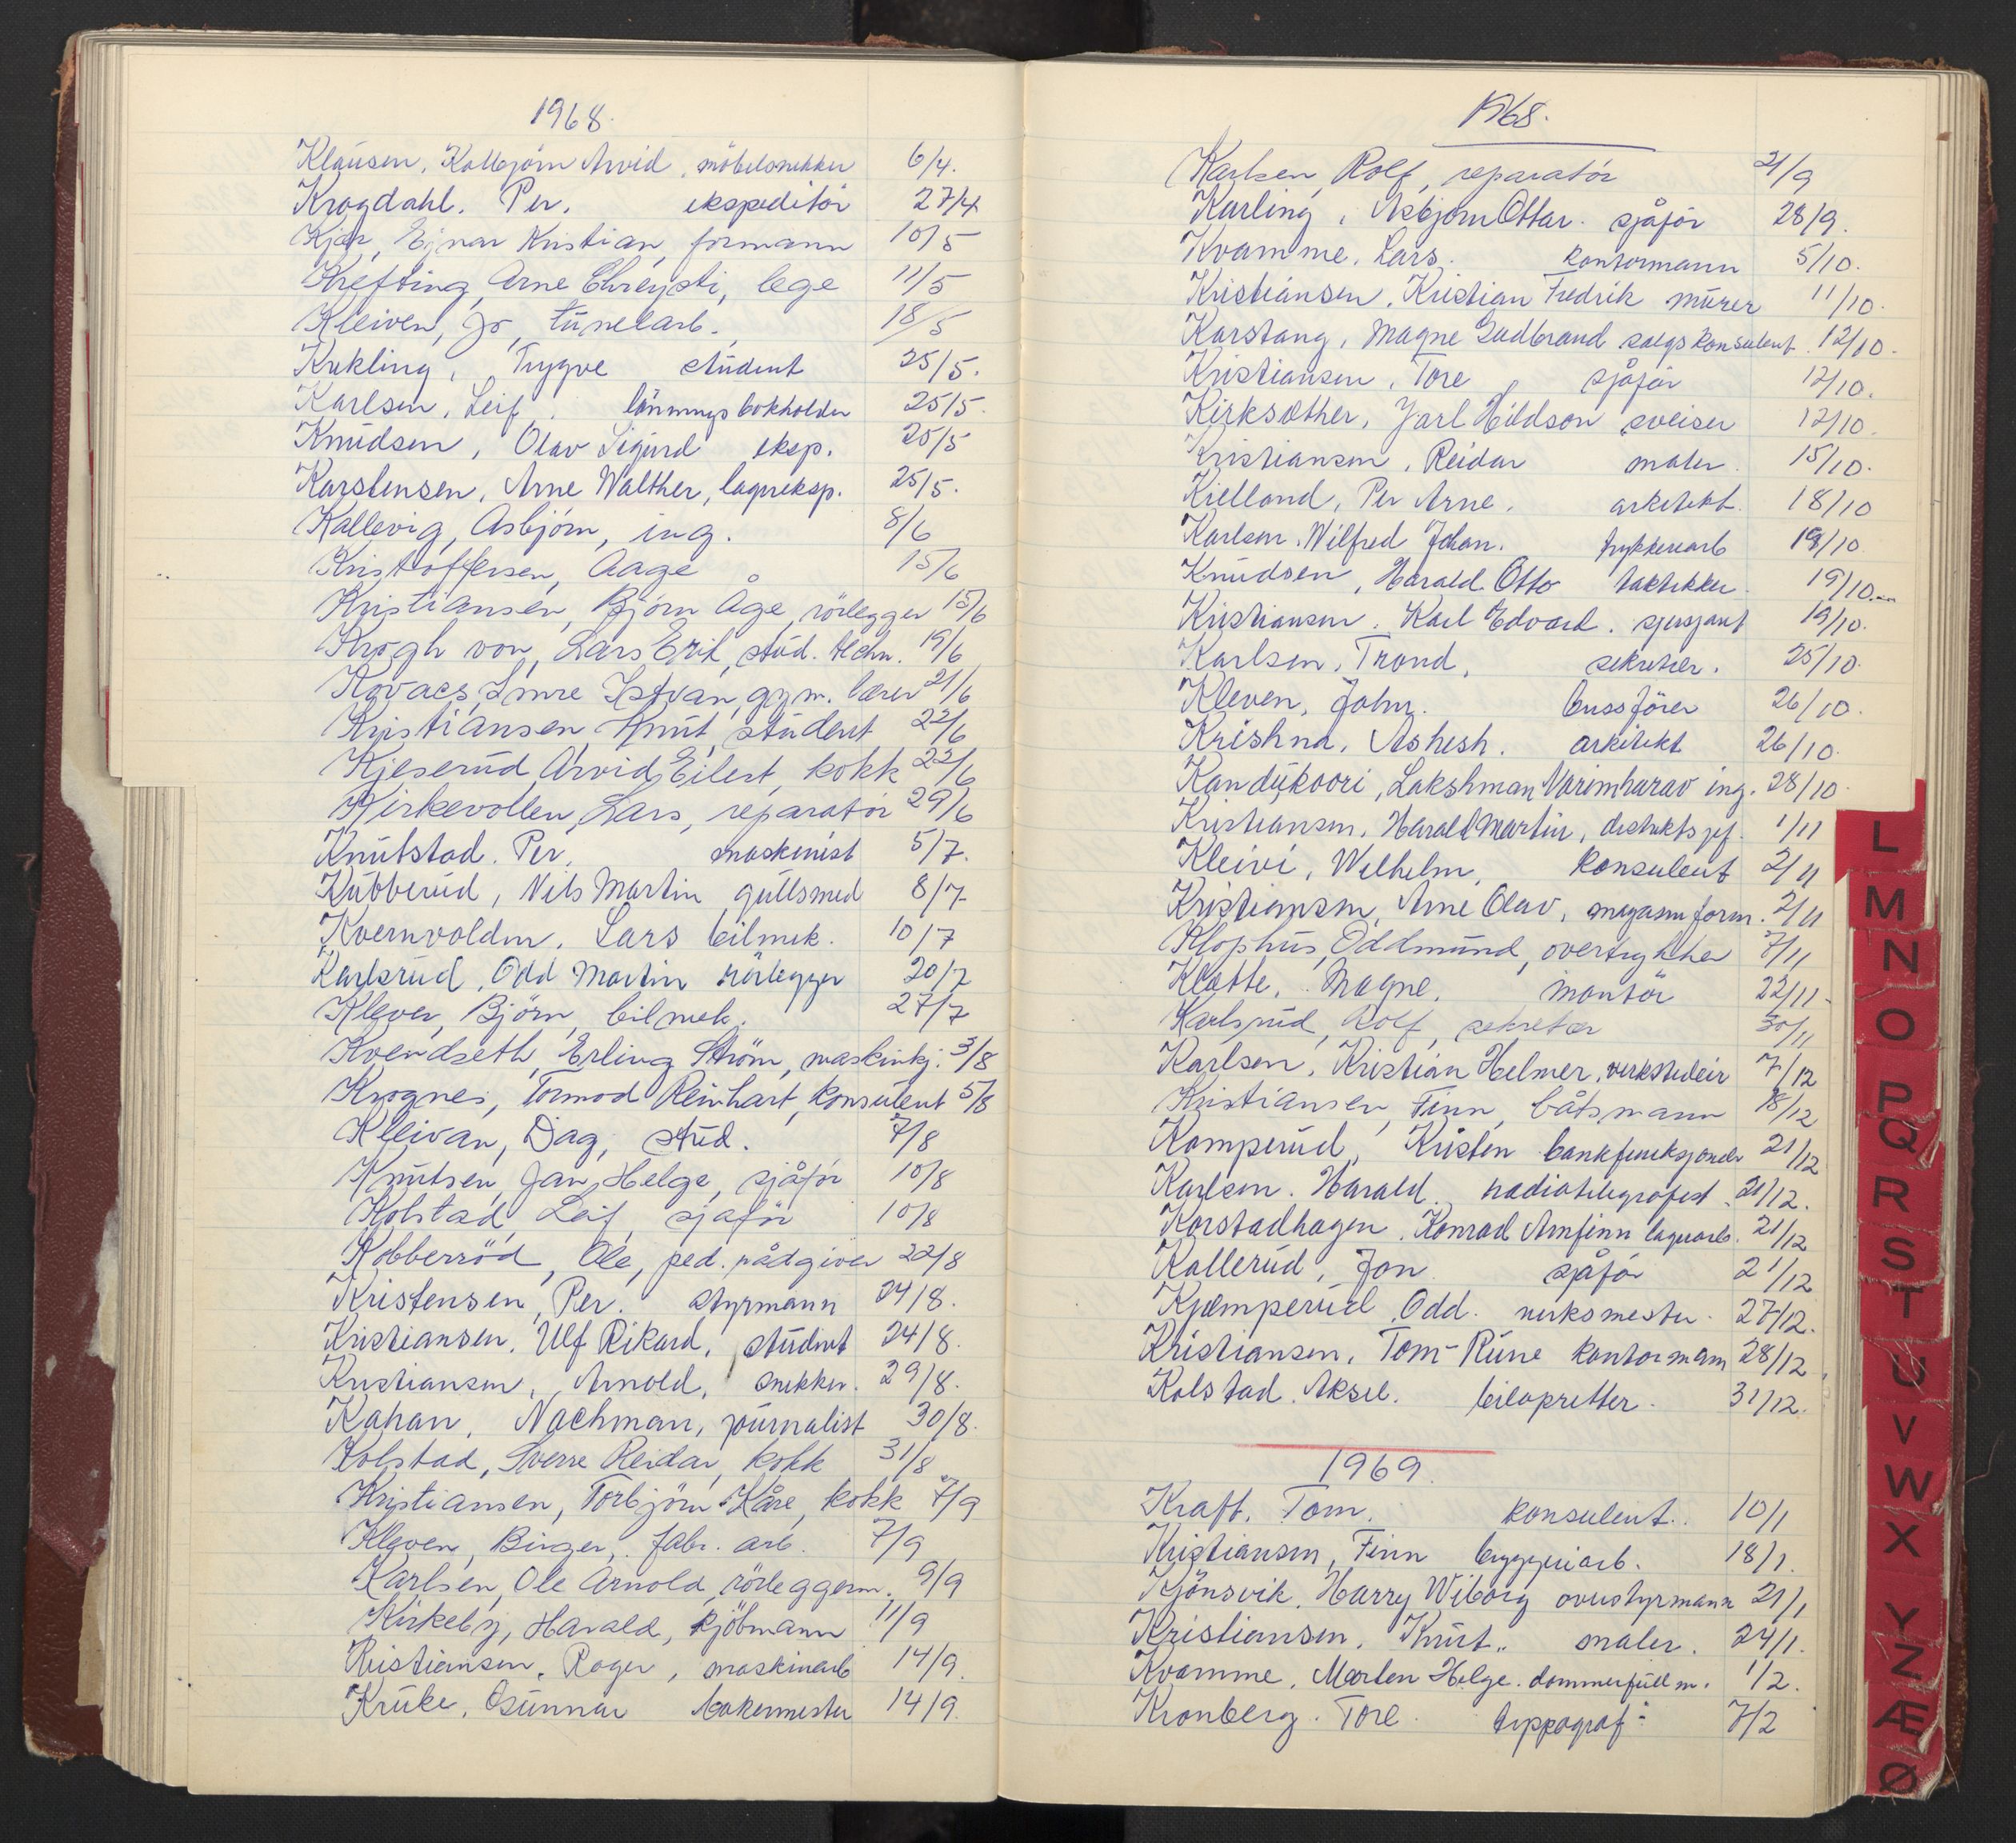 1968.
Klausen, Kolbjörn Arvid, möbelsnekker 6/4.
Krogdahl. Per. ekspeditör 27/4
Kjær, Ejnar Kristian, formann 10/5
Krefting, Arne lege 11/5
Kleiven, Jo, tunelarb. 18/5
Kukling, Trygve student 25/5.
Karlsen, Leif. lönningsbokholder 25/5.
Knudsen, Olav Sigurd eksp. 25/5
Karstensen, Arne Walther, lagereksp. 25/5.
Kallevig, Asbjörn, ing. 8/6
Kristoffersen, Aage 15/6
Kristiansen, Bjørn Åge, rörlegger 15/6
Krogh von, Lars Erik, stud. techn. 19/6
Kovacs, Imre Istvan, gym. lærer 21/6
Kristiansen, Knut, student 22/6
Kjeserud, Arvid Eilert, kokk 22/6
Kirkevollen, Lars, reparatör 29/6
Knutstad. Per, maskinist 5/7.
Kubberud, Nils Martin gullsmed 8/7
Kvernvolden. Lars bilmek. 10/7
Karlsrud, Odd Martin rörlegger 20/7
Klever, Björn, bilmek. 27/7
Kvendseth, Erling Ström, maskinkj. 3/8
Krognes, Tormod Reinhart, konsulent 5/8
Kleivan, Dag, stud. 7/8
Knutsen, Jan Helge, sjåför 10/8
Kolstad, Leif, sjåför 10/8
Kobberröd, Ole, ped. rådgiver 22/8
Kristensen, Per. styrmann 24/8.
Kristiansen, Ulf Rikard, student 24/8.
Kristiansen, Arnold, snekker. 29/8.
Kahan, Nachman, journalist 30/8.
Kolstad, Sverre Reidar, kokk 31/8
Kristiansen, Torbjörn Kåre, kokk 7/9
Kleven, Birger, fabr. arb. 7/9
Karlsen, Ole Arnold, rörleggerm. 9/9
Kirkeby, Harald, kjöbmann 11/9
Kristiansen, Roger, maskinarb 14/9.
Kruke, Gunnar bakermester 14/9.
1968.
Karlsen, Rolf, reparatör 21/9
Karling, Asbjørn Ottar. sjåför 28/9.
Kvamme, Lars. kontormann 5/10.
Kristiansen, Kristian Fredrik murer 11/10.
Korstang, Magne Gudbrand salgskonsulent 12/10.
Kristiansen, Tore, sjåför 12/10.
Kirksæther, Jarl Hildson sveiser 12/10.
Kristiansen, Reidar maler. 15/10.
Kielland, Per Arne, arkitekt. 18/10
Karlsen. Wilfred Johan. trykkeriarb 19/10.
Knudsen, Harald Otto taktekker. 19/10.
Kristiansen. Karl Edvard. sjersjant 19/10.
Karlsen, Trond, sekretær. 25/10.
Kleven, John. bussförer 26/10.
Krishna, Ashesh. arkitekt 26/10.
Kandukoori, Lakshman Narimharav ing. 28/10.
Kristiansen, Harald Martin, distriktssjef. 1/11
Kleivi, Wilhelm, konsulent 2/11
Kristiansen, Arne Olav, magasinform. 2/11
Klophus, Oddmund, overtrykker 7/11
Klette, Magne. montör 22/11.
Karlsrud, Rolf, sekretær 30/11
Karlsen, Kristian Helmer, verkstedeier 7/12
Kristiansen, Finn, båtsmann 18/12
Komperud, Kristen bankfunksjonær 21/12
Karlsen. Harald. radiotelegrafist. 21/12.
Korstadhagen, Konrad Arnfinn lagerarb. 21/12
Kollerud, Jon sjåför 21/12
Kjæmperud, Odd. verksmester. 27/12.
Kristiansen, Tom-Rune kontormann 28/12,
Kolstad, Aksel. biloppretter. 31/12.
1969.
Kraft, Tom, konsulent. 10/1
Kristiansen, Finn bryggeriarb. 18/1.
Kjönsvik, Harry Wiborg overstyrmann 21/1
Kristiansen, Knut. maler. 24/1.
Kvamme, Marten Helge. dommerfullm. 1/2.
Kronberg. Tore. typpograf. 7/2
L
M
N
O
P
Q
R
S
T
U
V
W
X
Y
Z
Æ
Ø